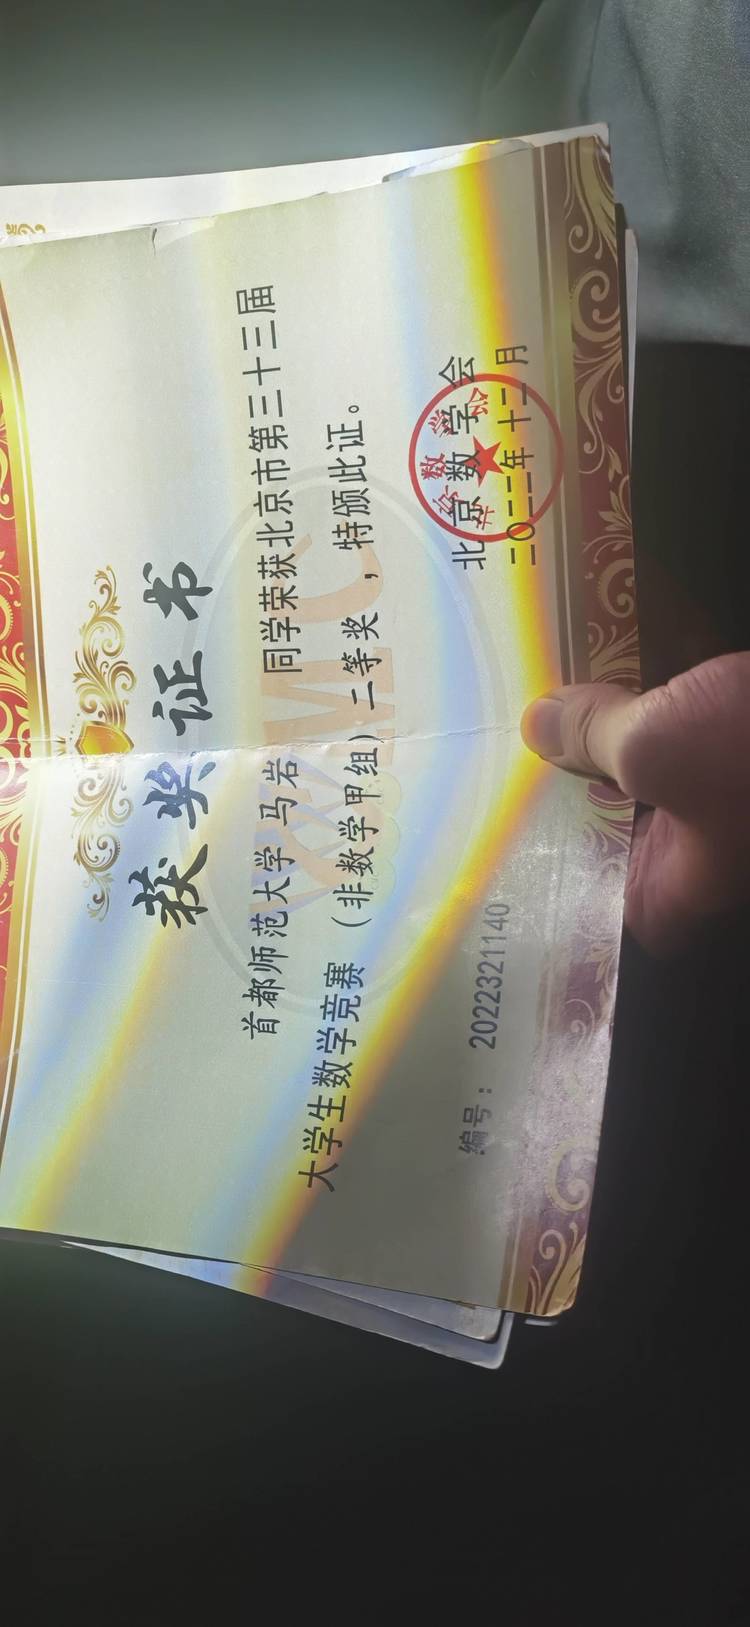 获奖证书
首都师范大学 马岩 同学荣获北京市第三十三届
大学生数学竞赛（非数学甲组）二等奖，特颁此证。
北京数学会
二〇二二年 十二月
编号：2022321140